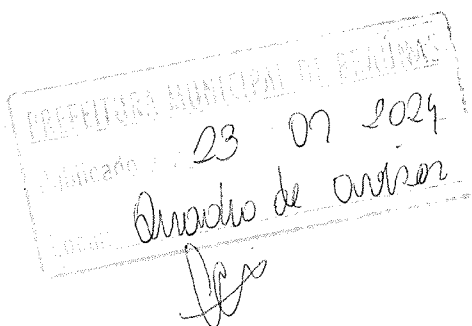 PREFEITURA MUNICIPAL DE BRAÚNAS
Publicado 23 07 2024
Local: Quadro de avisos